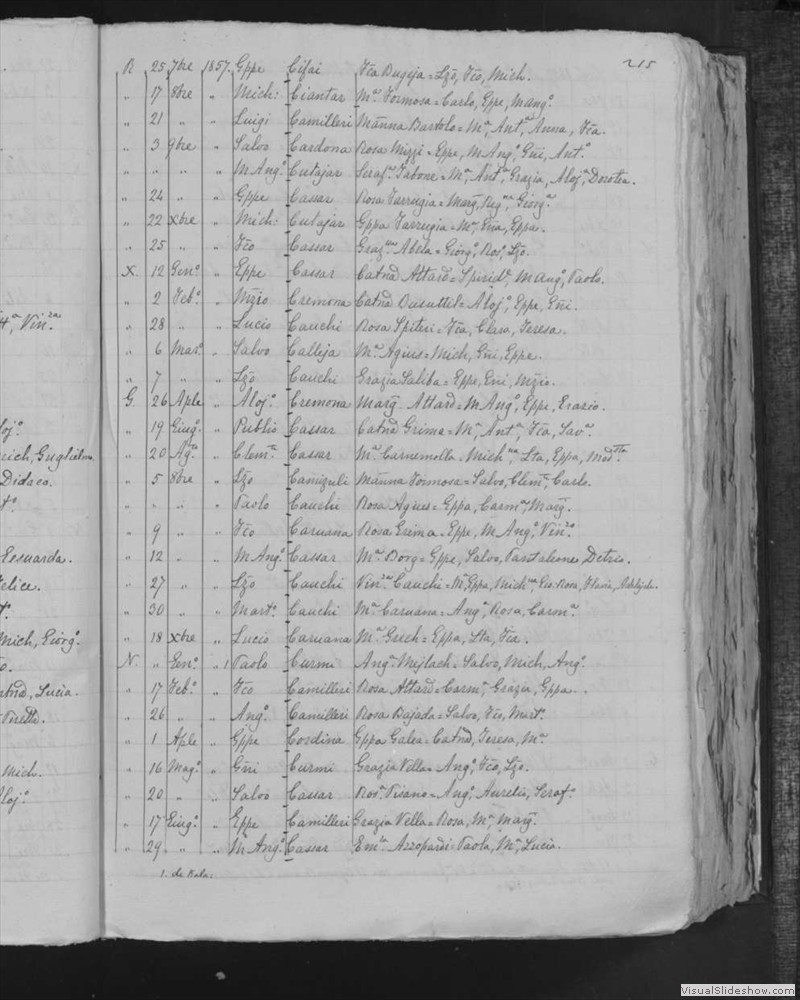 ..
H.a, Vin.za
loj.o
mich, Guglielmo.
Didaco.
t.o
Essuarda.
Felice.
t.o
Mich, Giorg.o
o.
atnd, Lucia.
Mich.
loj.o
215
R 25 7bre 1857. Gppe Cifai Fca Bugeja = Lzo, Fco, Mich.
" 17 8bre " Mich: Ciantar M.a Formosa = Carlo, Gppe, M Ang.o
" 21 " " Luigi Camilleri Mānna Bartolo = M.a, Ant.a, Anna, Fca.
" 3 9bre " Salvo Cardona Rosa Mizzi = Gppe, M Ang.o, Gñi, Ant.o
" " " " M Ang.o Cutajar Seraf.a Tabone = M.a, Ant.a, Grazia, Aloj.a, Dorotea.
" 24 " " Gppe Cassar Rosa Farrugia = Marg, Giorg.a
" 22 Xbre " Mich: Cutajar Gppa Farrugia = M.a, Gppa.
" 25 " " Fco Cassar Graz.a Abela = Giorg.o, Ros.o, Lzo.
X. 12 Gen.o " Gppe Cassar Catnd Attard = Spirid.e, M Ang.o, Paolo.
" 2 Feb.o " Cremona Catnd Busuttil = Aloj.o, Gppe, Gñi.
" 28 " " Lucio Cauchi Rosa Spiteri = Fca, Clara, Teresa.
" 6 Mar.o " Salvo Calleja M.a Agius = Mich, Gñi, Gppe.
" 7 " " Lzo Cauchi Grazia Saliba = Gppe, Gñi,
G. 26 Aple " Aloj.o Cremona Marg. Attard = M Ang.o, Gppe, Grazio.
" 19 Giug.o " Publio Cassar Catnd Grima = M.a, Ant.a, Fca, Sav.a
" 20 Ag.to " Clem.te Cassar M.a Carnemolla = Mich.na, Lta, Gppa, Mad.lla
" 5 8bre " Lzo Camizuli Mānna Formosa = Salvo, Clem.te, Carlo.
" " " " Paolo Cauchi Rosa Agius = Gppa, Carm.a, Marg.
" 9 " " Fco Caruana Rosa Grima = Gppe, M Ang.o, Vin.zo
" 12 " " M Ang.o Cassar M.a Borg = Gppe, Salvo, Pantaleone
" 27 " " Lzo Cauchi Vin.za Cauchi = M.a, Gppa, Mich.na, Rosa, Flavia,
" 30 " " Mart.o Cauchi M.a Caruana = Ang.a, Rosa, Carm.a
" 18 Xbre " Lucio Caruana M.a Grech = Gppa, Lta, Fca.
N. " Gen.o " 1 Paolo Curmi Ang.a Mejlach = Salvo, Mich, Ang.o
" 17 Feb.o " Fco Camilleri Rosa Attard = Carm.a, Grazia, Gppa.
" 26 " " Ang.o Camilleri Rosa Bajada = Salvo, Fco, Mart.o
" 1 Aple " Gppe Cordina Gppa Galea = Catnd, Teresa, M.a
" 16 Mag.o " Gñi Curmi Grazia Vella = Ang.o, Fco, Lzo.
" 20 " " Salvo Cassar Ros.a Pisano = Ang.o, Aurelio, Seraf.o
" 17 Giug.o " Gppe Camilleri Grazia Vella = Rosa, M.a, Marg.
" 29 " " M Ang.o Cassar Em.la Azzopardi = Paola, M.a, Lucia.
1. de Kala.
VisualSlideshow.com